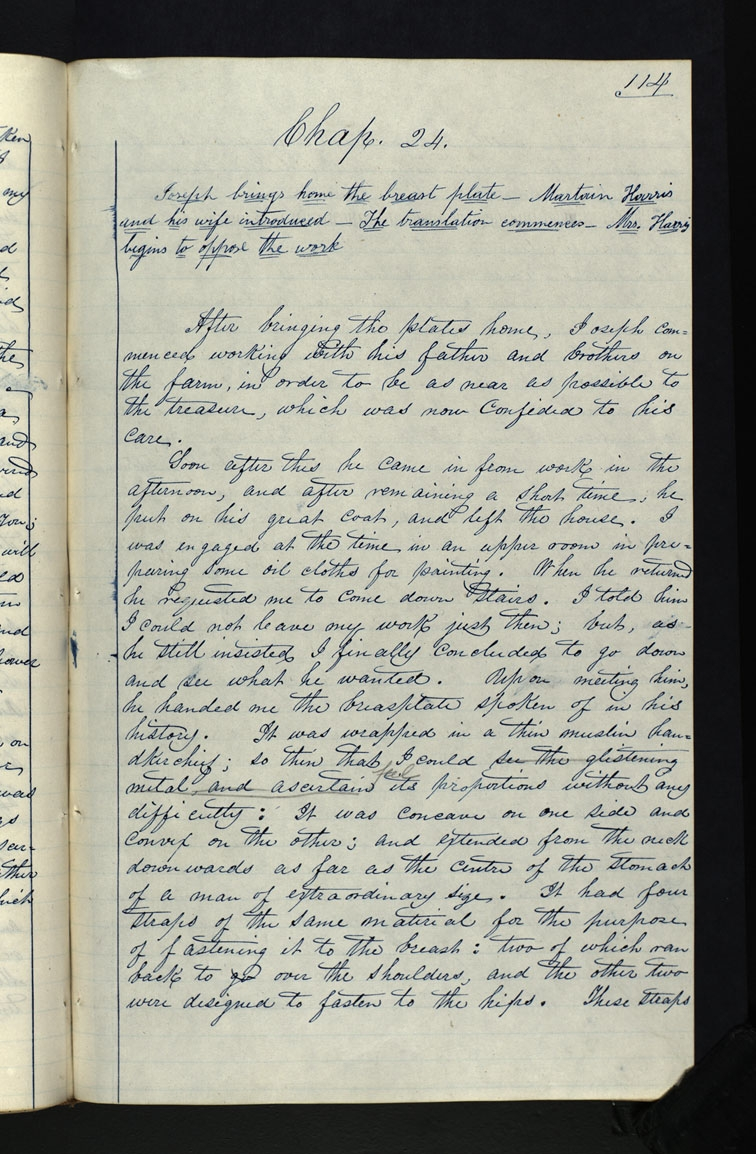 114
Chap. 24.
Joseph brings home the breast plate — Martain Harris
and his wife introduced — The translation commences — Mrs. Harris
begins to oppose the work
After bringing the plates home, Joseph com=
menced working with his father and brothers on
the farm, in order to be as near as possible to
the treasure, which was now Confided to his
care.
Soon after this he came in from work in the
afternoon, and after remaining a short time, he
put on his great coat, and left the house. I
was engaged at the time in an upper room in pre=
paring some oil cloths for painting. When he returned
he requested me to come down Stairs. I told him
I could not leave my work just then; but, as
he still insisted I finally concluded to go down
and see what he wanted. Upon meeting him,
he handed me the breasplate spoken of in his
history. It was wrapped in a thin muslin han=
dkirchief; so thin that I could see the glistening
feel
metal, and ascertain its proportions without any
difficulty: It was concave on one side and
convex on the other; and extended from the neck
downwards as far as the centre of the stomach
of a man of extraordinary size. It had four
straps of the same material for the purpose
of fastening it to the breast: two of which ran
back to go over the shoulders, and the other two
were designed to fasten to the hips. These straps
ken
my
d
the
and
d
you;
will
ed
and
power
on
was